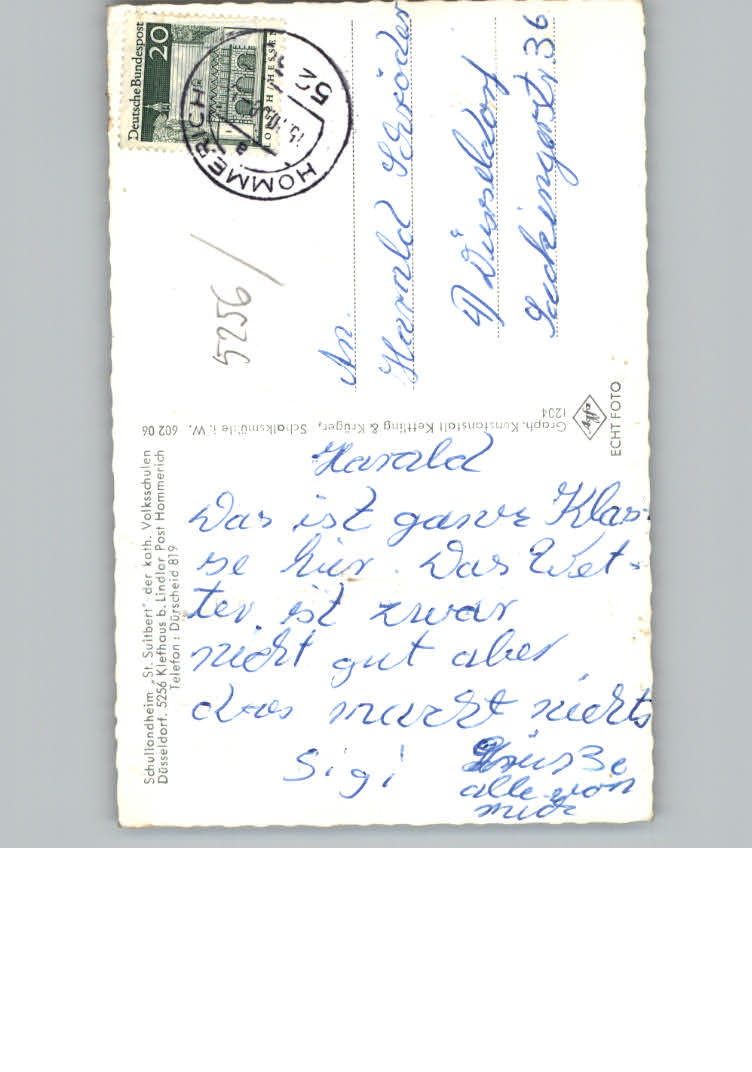 Schullandheim „St. Suitbert" der kath. Volksschulen
Düsseldorf. 5256 Klefhaus b. Lindlar Post Hommerich
Telefon: Dürscheid 819
Harald
Das ist ganze Klas-
se hier. Das Wet-
ter ist zwar
nicht gut aber
das macht nichts
Sigi
Grüsse
alle von
mir
Graph. Kunstanstalt Kettling & Krüger, Schalksmühle i. W. 602 06
1204
Agfa
ECHT FOTO
Deutsche Bundespost
20
LORSCH HESSEN
HOMMERICH
52
a
5256
An.
Harald Schröder
4 Düsseldorf
Säckingerstr. 36